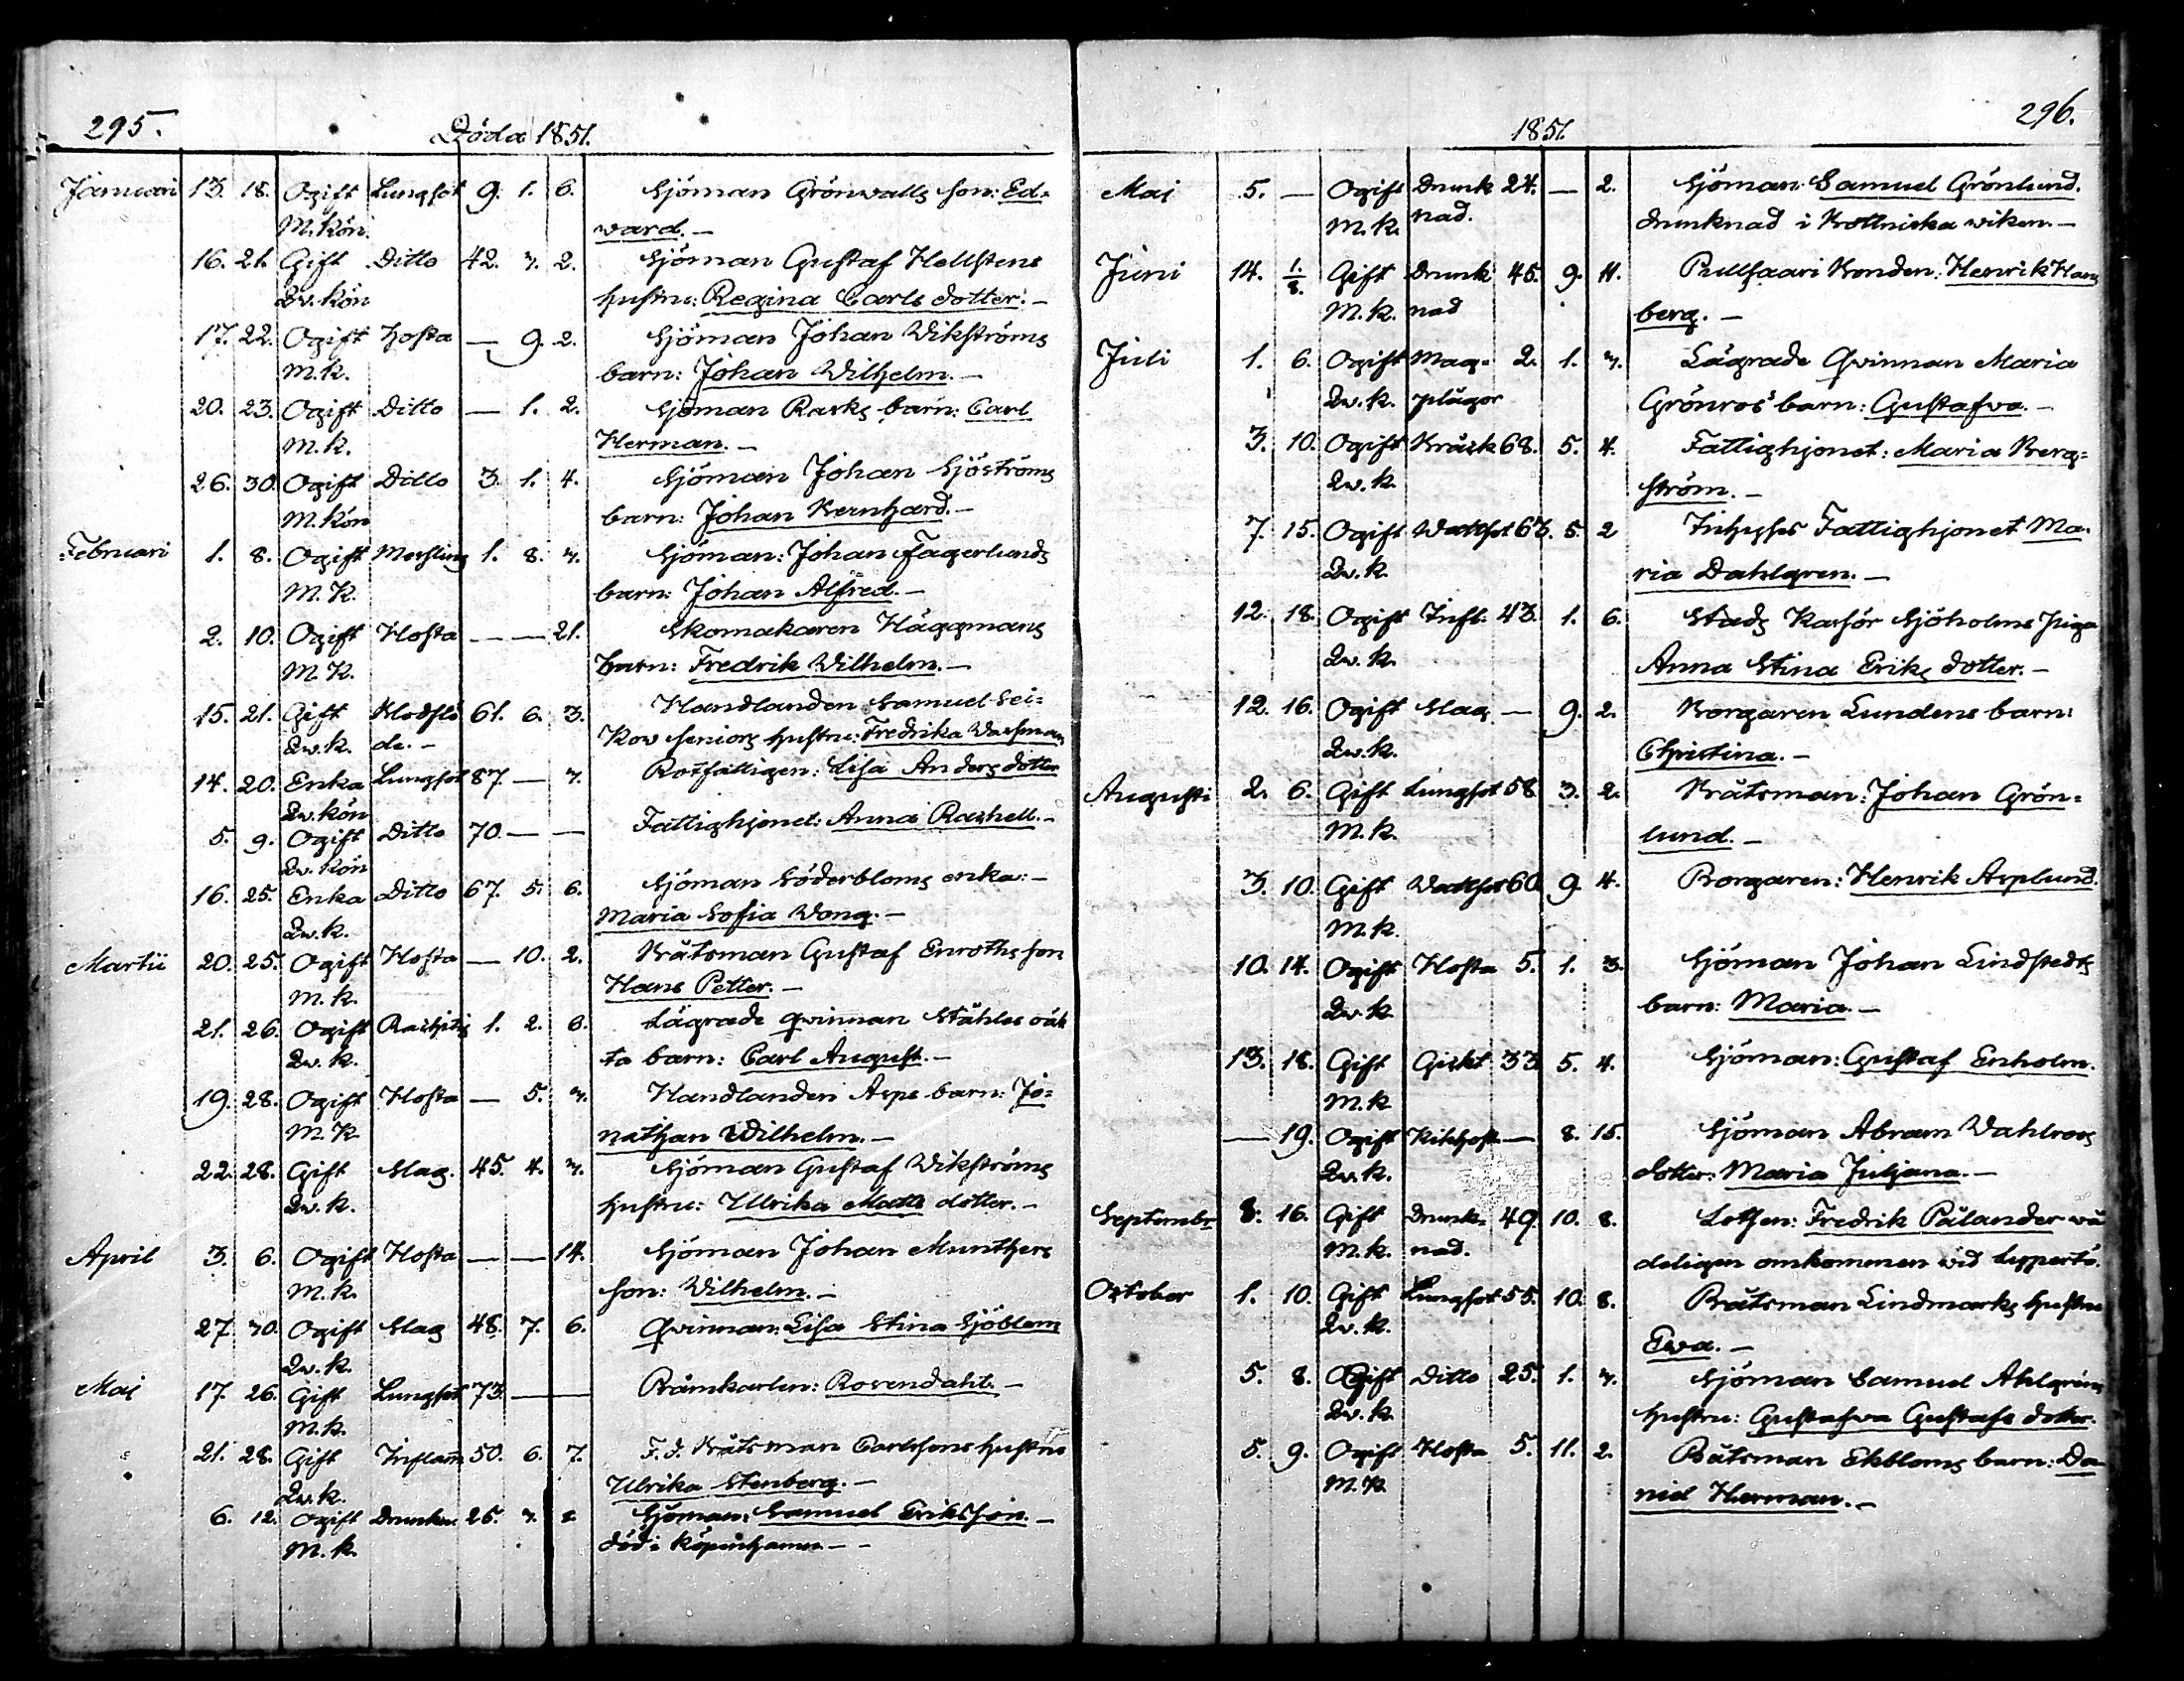 295.
Döda 1851.
Januari 13. 18. Ogift Lungsot 9. 1. 6. Sjöman Grönvalls son: Ed=
M. Kön. ward. —
16. 21. Gift Ditto 42. 7. 2. Sjöman Gustaf Hellstens
Qv. Kön hustru: Regina Carls dotter. —
17. 22. Ogift Hosta — 9. 2. Sjöman Johan Wikströms
M. K. barn: Johan Wilhelm. —
20. 23. Ogift Ditto — 1. 2. Sjöman Rasks barn: Carl
M. K. Herman. —
26. 30. Ogift Ditto 3. 1. 4. Sjöman Johan Sjöströms
M. Kön barn: Johan Bernhard. —
Februari 1. 8. Ogift Messling 1. 8. 7. Sjöman: Johan Fagerlunds
M. K. barn: Johan Alfred. —
2. 10. Ogift Hosta — — 21. Skomakaren Häggmans
M. K. barn: Fredrik Wilhelm. —
15. 21. Gift Blodflö 61. 6. 3. Handlanden Samuel Sei=
Qw. k. de. — kow seniors hustru: Fredrika
14. 20. Enka Lungsot 87. — 7. Rotfattigen: Lisa Anders dotter
Qv. Kön
5. 9. Ogift Ditto 70. — — Fattighjonet: Anna Raxhell. —
Qv. Kön
16. 25. Enka Ditto 67. 5. 6. Sjöman Söderbloms enka: —
Qw. k. Maria Sofia Wong. —
Martii 20. 25. Ogift Hosta — 10. 2. Båtsman Gustaf Enroths son
M. k. Hans Petter. —
21. 26. Ogift Rachitis 1. 2. 6. Lägrade qvinnan Ståhles oäk
Qw. k. ta barn: Carl August. —
19. 28. Ogift Hosta — 5. 7. Handlanden Asps barn: Jo=
M. K nathan Wilhelm. —
22. 28. Gift Slag. 45. 4. 7. Sjöman Gustaf Wikströms
Qw. k. hustru: Ulrika Matts dotter. —
April 3. 6. Ogift Hosta — — 14. Sjöman Johan Munthers
M. k. son: Wilhelm. —
27. 30. Ogift Slag 48. 7. 6. Qvinnan: Lisa Stina Sjöblom
Qw. k.
Maj 17. 26. Gift Lungsot 73. — Pråmkarlen: Rosendahl. —
M. k.
21. 28. Gift Inflam 50. 6. 7. F.d. Båtsman Carlssons hustru
Qw. k. Ulrika Stenberg. —
6. 12. Ogift Drunkn 25. 7. Sjöman: Samuel Eriksson. —
M. k. död i Köpenhamn — —
296.
1851.
Maj 5. — Ogift Drunk 24. — 2. Sjöman: Samuel Grönlund.
M. k. nad. drunknad i Bottniska wiken. —
Juni 14. 1./8. Gift Drunk 45. 9. 11. Pullsaari Bonden: Henrik Ham
M. k. nad berg. —
Juli 1. 6. Ogift Mag= 2. 1. 7. Lägrade Qvinnan Maria
Qw. k. plågor Grönros barn: Gustafva. —
3. 10. Ogift Bråck 68. 5. 4. Fattighjonet: Maria Berg=
Qw. k. ström. —
7. 15. Ogift Wattsot 63. 5. 2 Inhyses Fattighjonet Ma=
Qw. k. ria Dahlgren. —
12. 18. Ogift Infl. 43. 1. 6. Stads Kassör Sjöholms piga
Qw. k. Anna Stina Eriks dotter. —
12. 16. Ogift Slag — 9. 2. Borgaren Lundens barn:
Qw. k. Christina. —
Augusti 2. 6. Gift Lungsot 58 3. 2. Båtsman: Johan Grön=
M. k. lund. —
3. 10. Gift Wattsot 60. 9. 4. Borgaren: Henrik Asplund.
M. k.
10. 14. Ogift Hosta 5. 1. 3. Sjöman Johan Lindstedts
Qw. k. barn: Maria. —
13. 18. Gift Gickt 33 5. 4. Sjöman: Gustaf Enholm.
M. k
— 19. Ogift Kikhost — 8. 15. Sjöman Abram Wahlroos
Qw. k. dotter: Maria Juljana. —
Septembr 8. 16. Gift Drunk= 49. 10. 8. Lotsen: Fredrik Pålander wå
M. k. nad. deligen omkommen wid
October 1. 10. Gift Lungsot 55. 10. 8. Båtsman Lindmarks hustru
Qw. k. Ewa. —
5. 8. Gift Ditto 25. 1. 7. Sjöman Samuel Ahlgrens
Qw. k. hustru: Gustafva Gustafs dotter.
5. 9. Ogift Hosta 5. 11. 2. Båtsman Ekbloms barn: Da=
M. K niel Herman. —